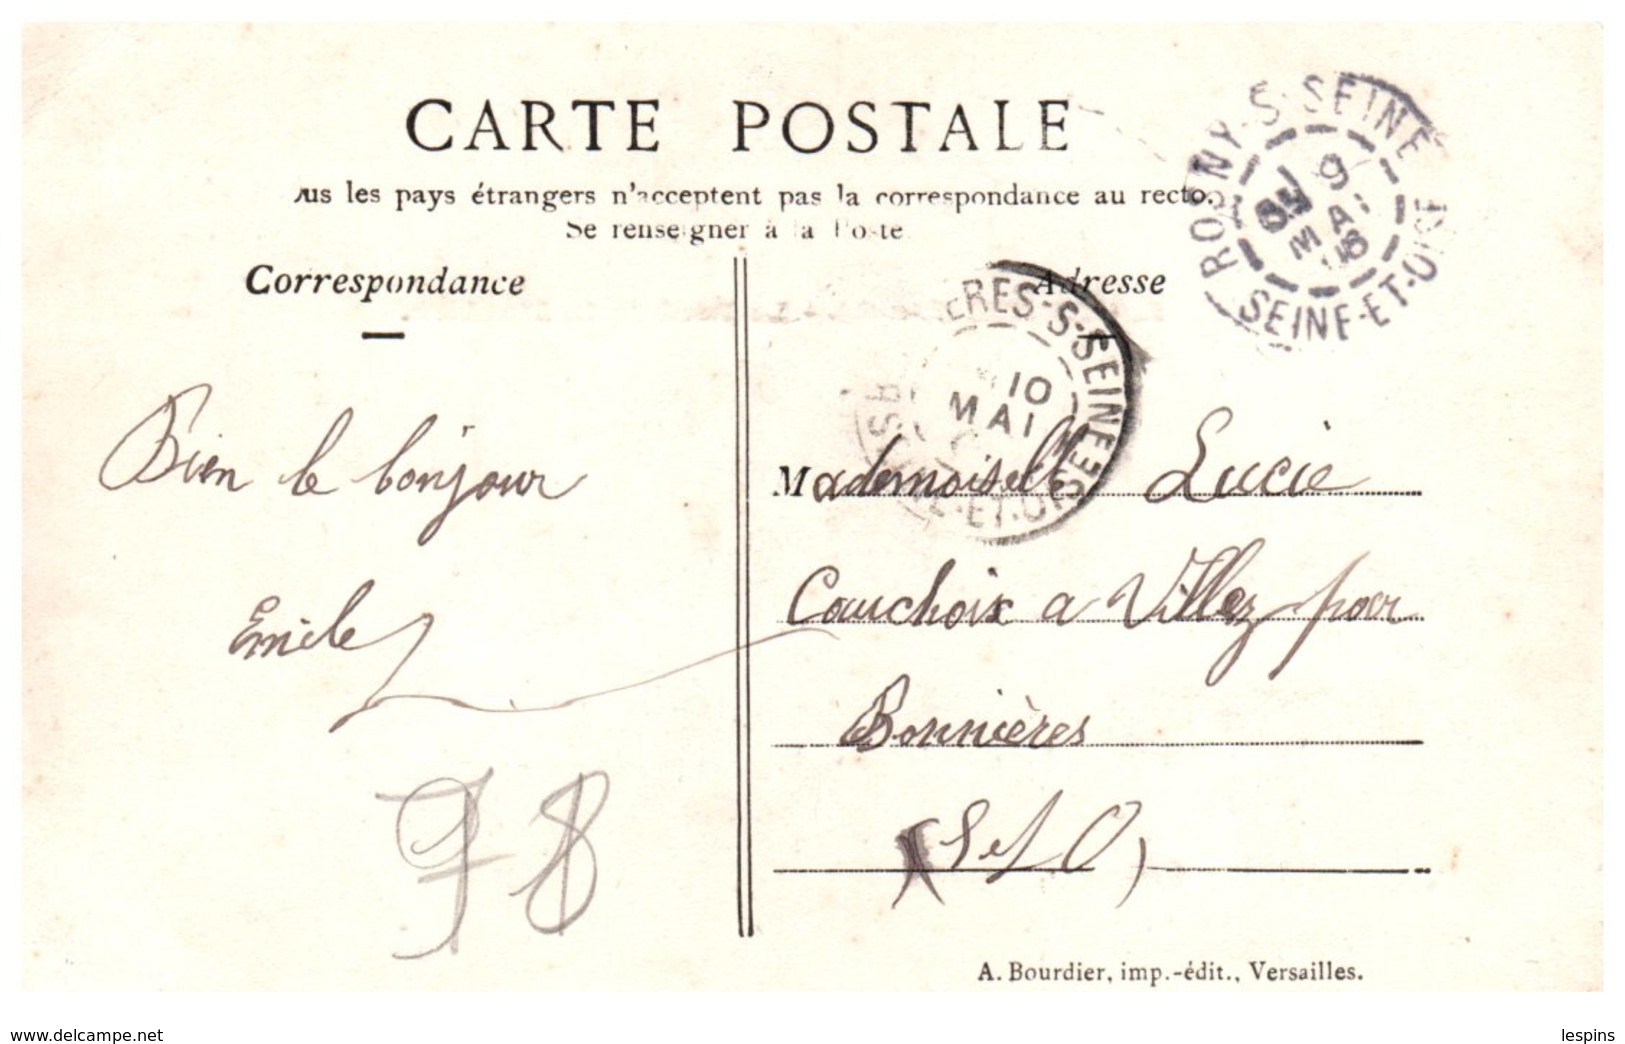 CARTE POSTALE
us les pays étrangers n'acceptent pas la correspondance au recto.
Se renseigner à la Poste
Correspondance
Adresse
ROSNY-S-SEINE
9
MAI
SEINE-ET-OISE
ERES-S-SEINE
10
MAI
ET-OISE
Bien le bonjour
Emile
Mademoiselle Lucie
Cauchoix a Villez pour
Bonnières
(S et O)
78
A. Bourdier, imp.-édit., Versailles.
www.delcampe.net
lespins